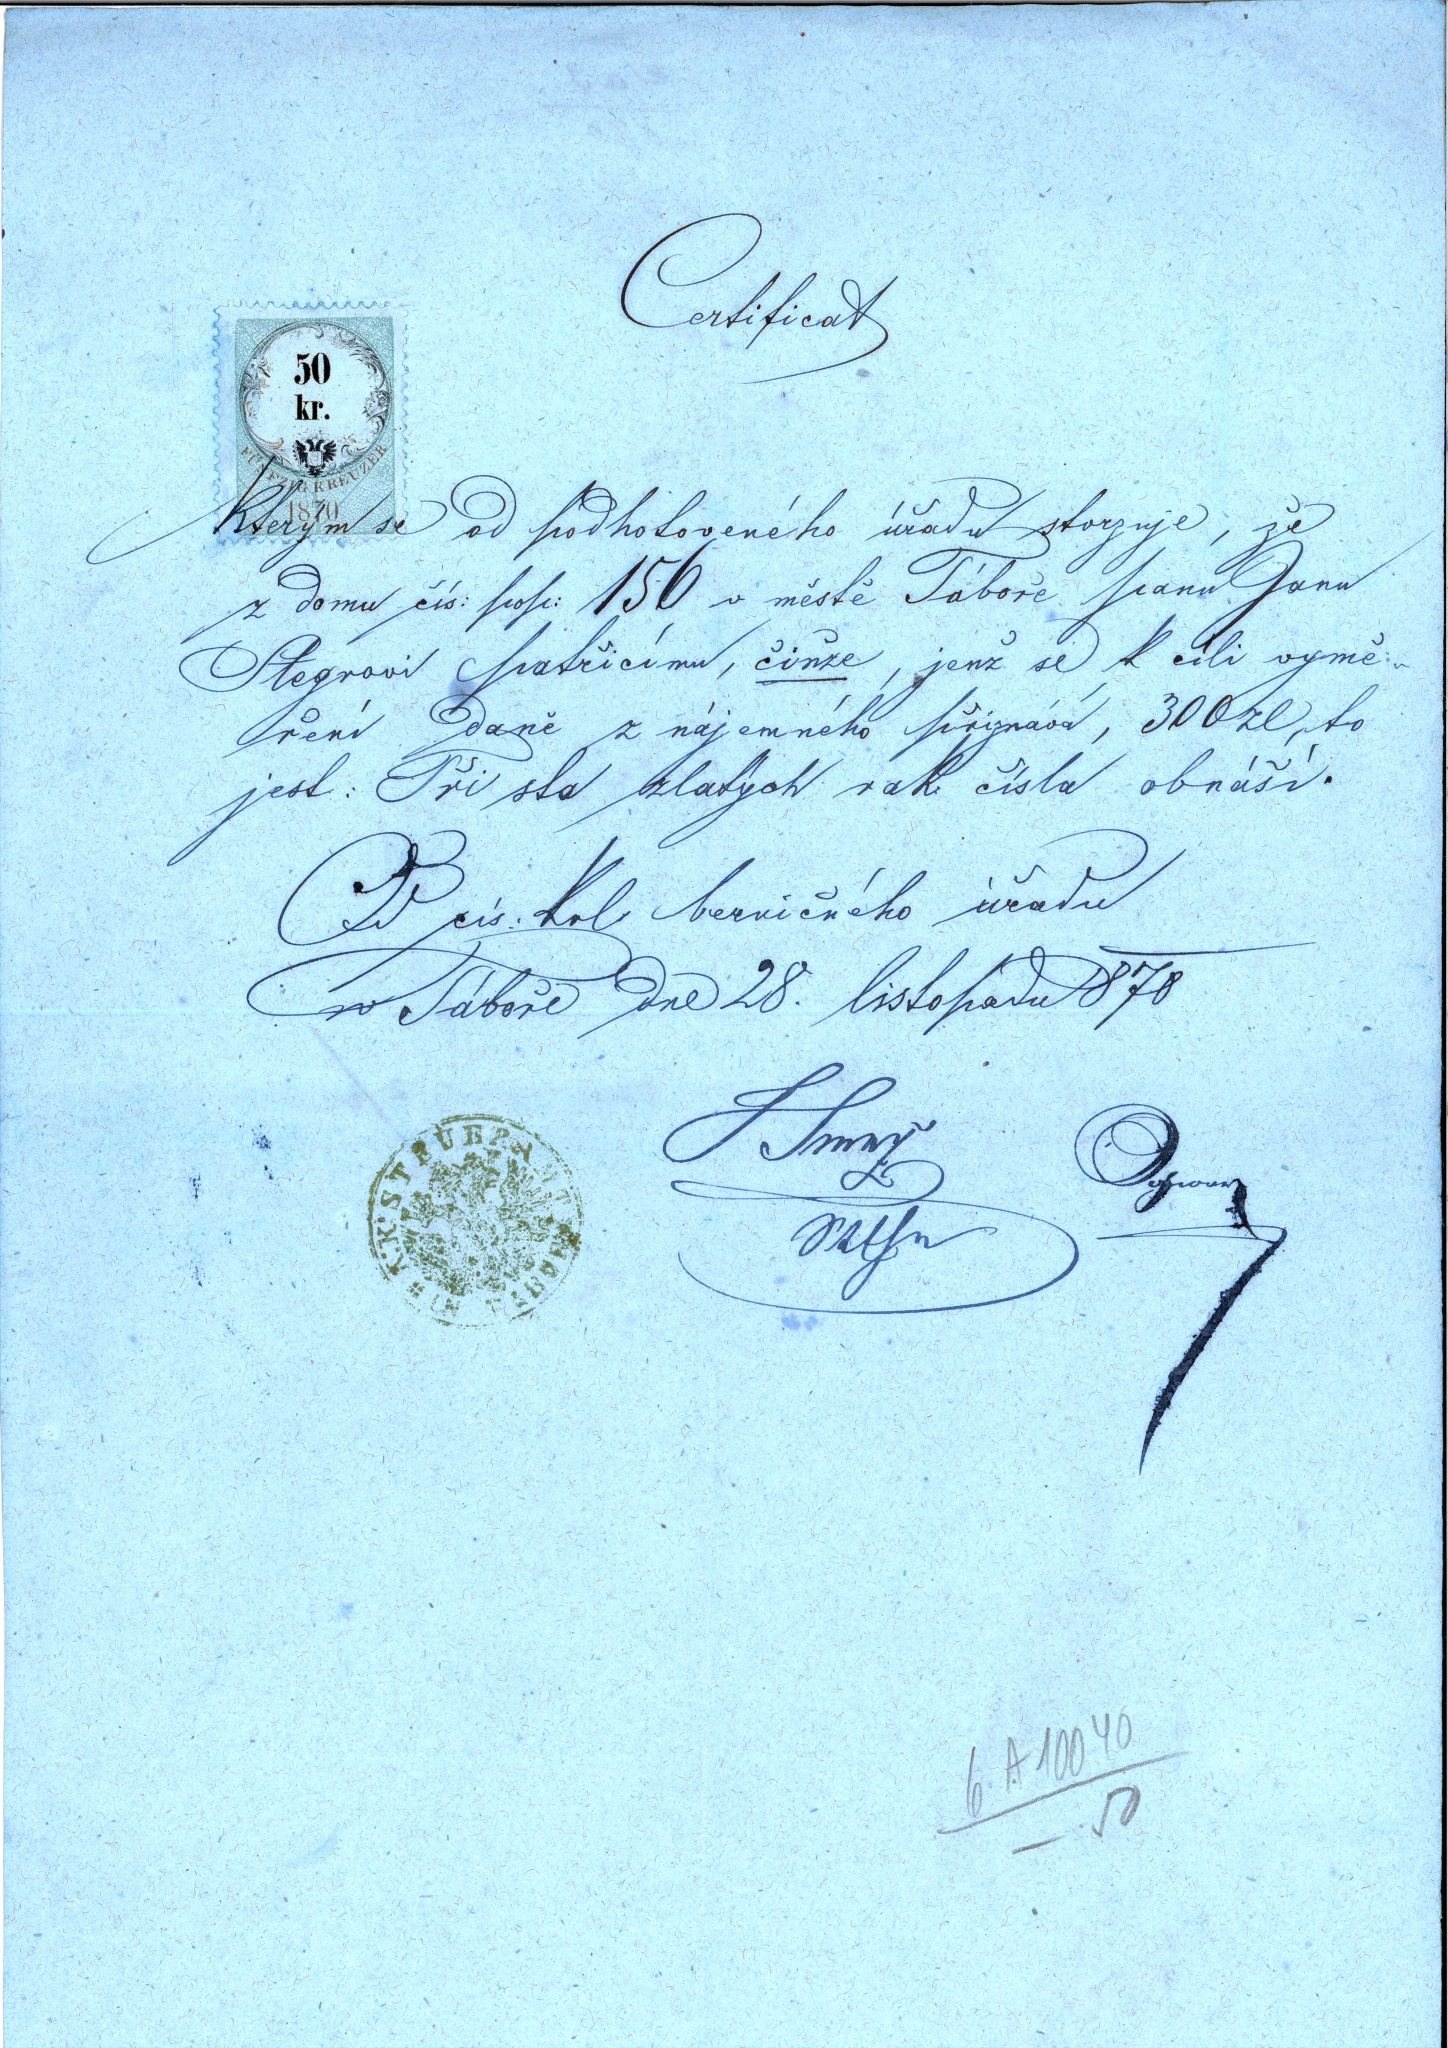 Certificat
50
kr.
FÜNFZIG KREUZER
1870
Kterým se od podhotoveného úřadu stvrzuje, že
z domu čís: pop: 156 v městě Táboře panu Janu
Stegrovi patřicímu, činže, jenž se k cíli vymě-
ření daně z nájemného přiznává, 300 zl, to
jest: Tři sta zlatých rak. čísla obnáší.
Od cís. kol berničného úřadu
v Táboře dne 28. listopadu 1870
K.K. STEUERAMT TABOR
6 A 100 40
— .50